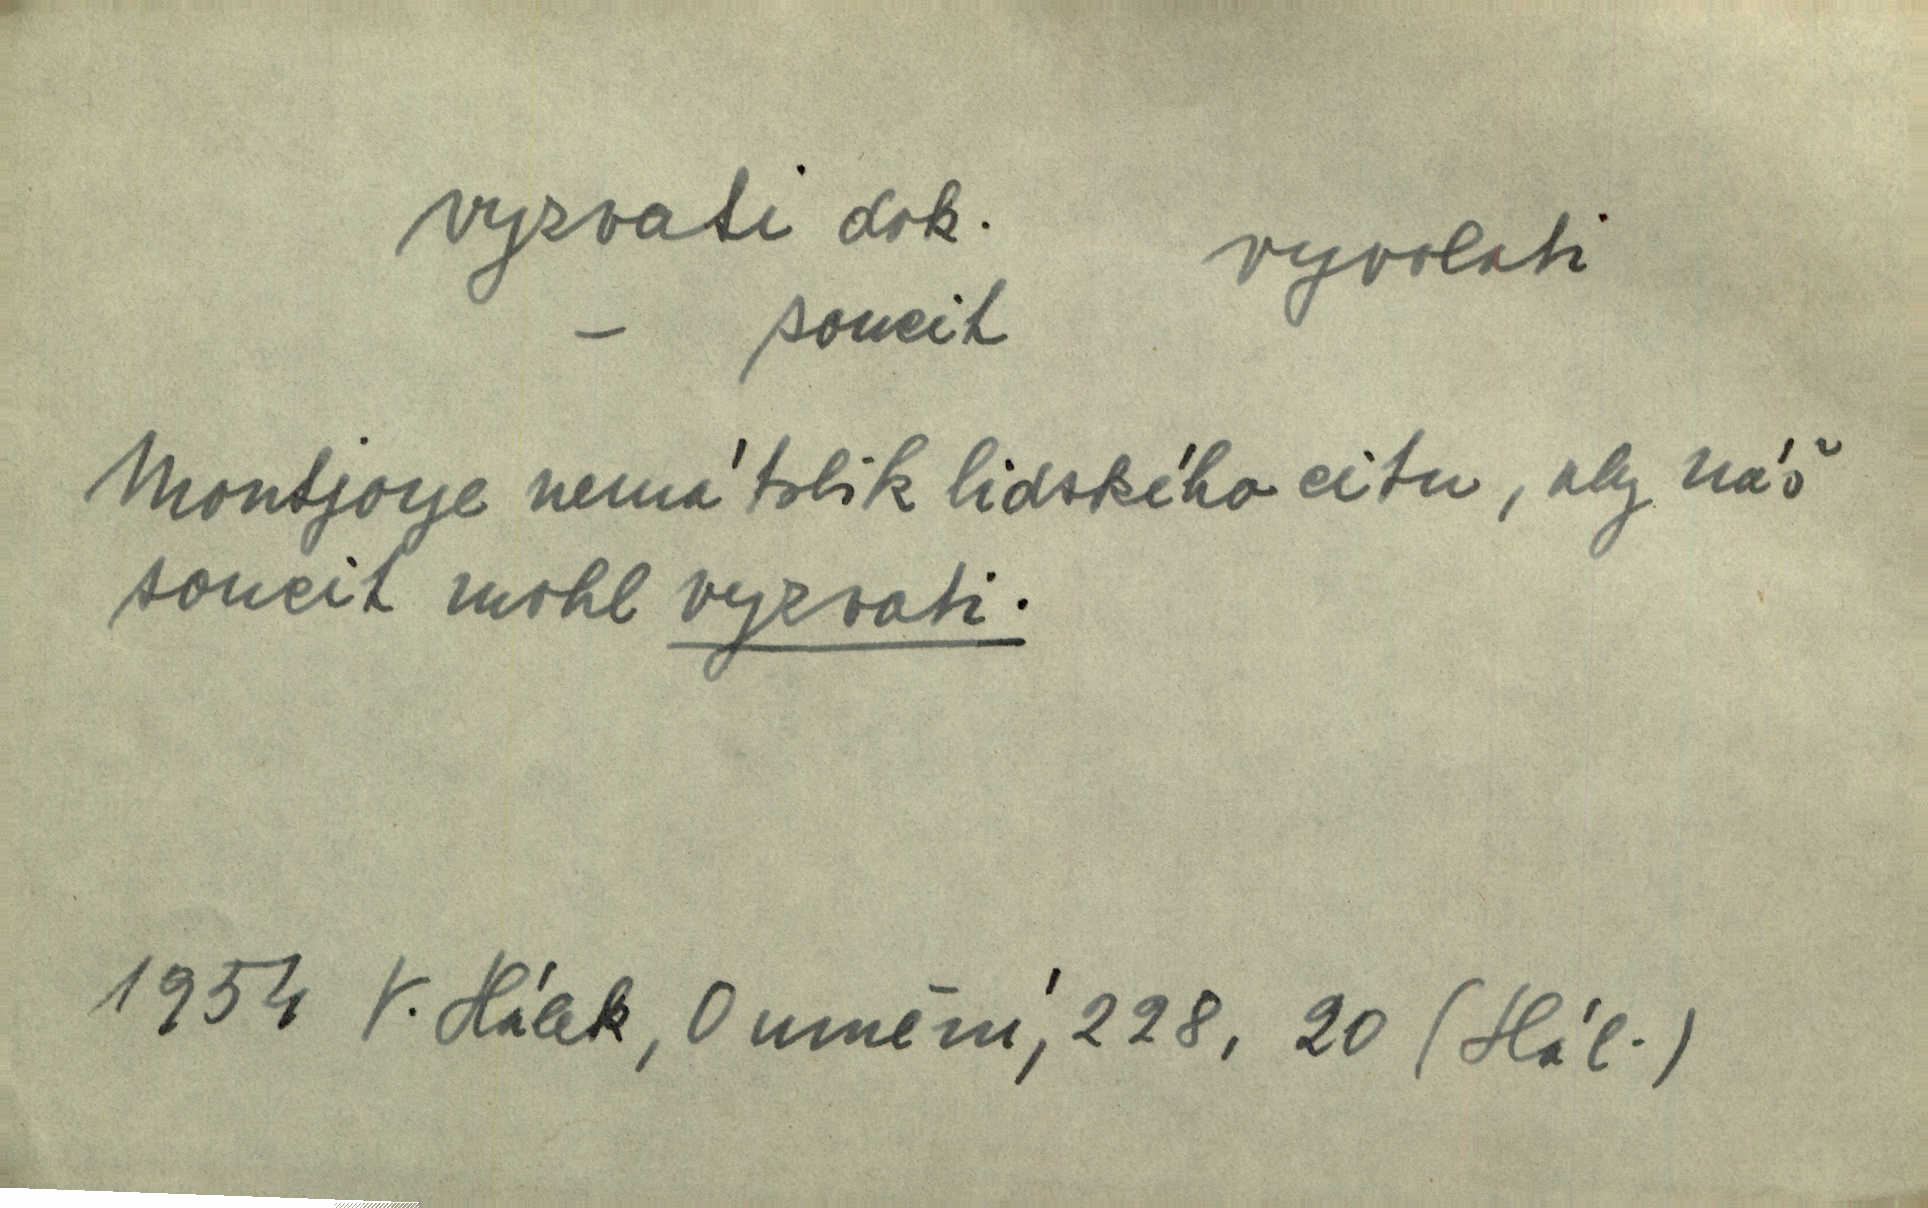 vyzvati dok.
vyvolati
– soucit
Montjoye nemá tolik lidského citu, aby náš
soucit mohl vyzvati.
1954 V. Hálek, O umění, 228, 20 (Hál.)